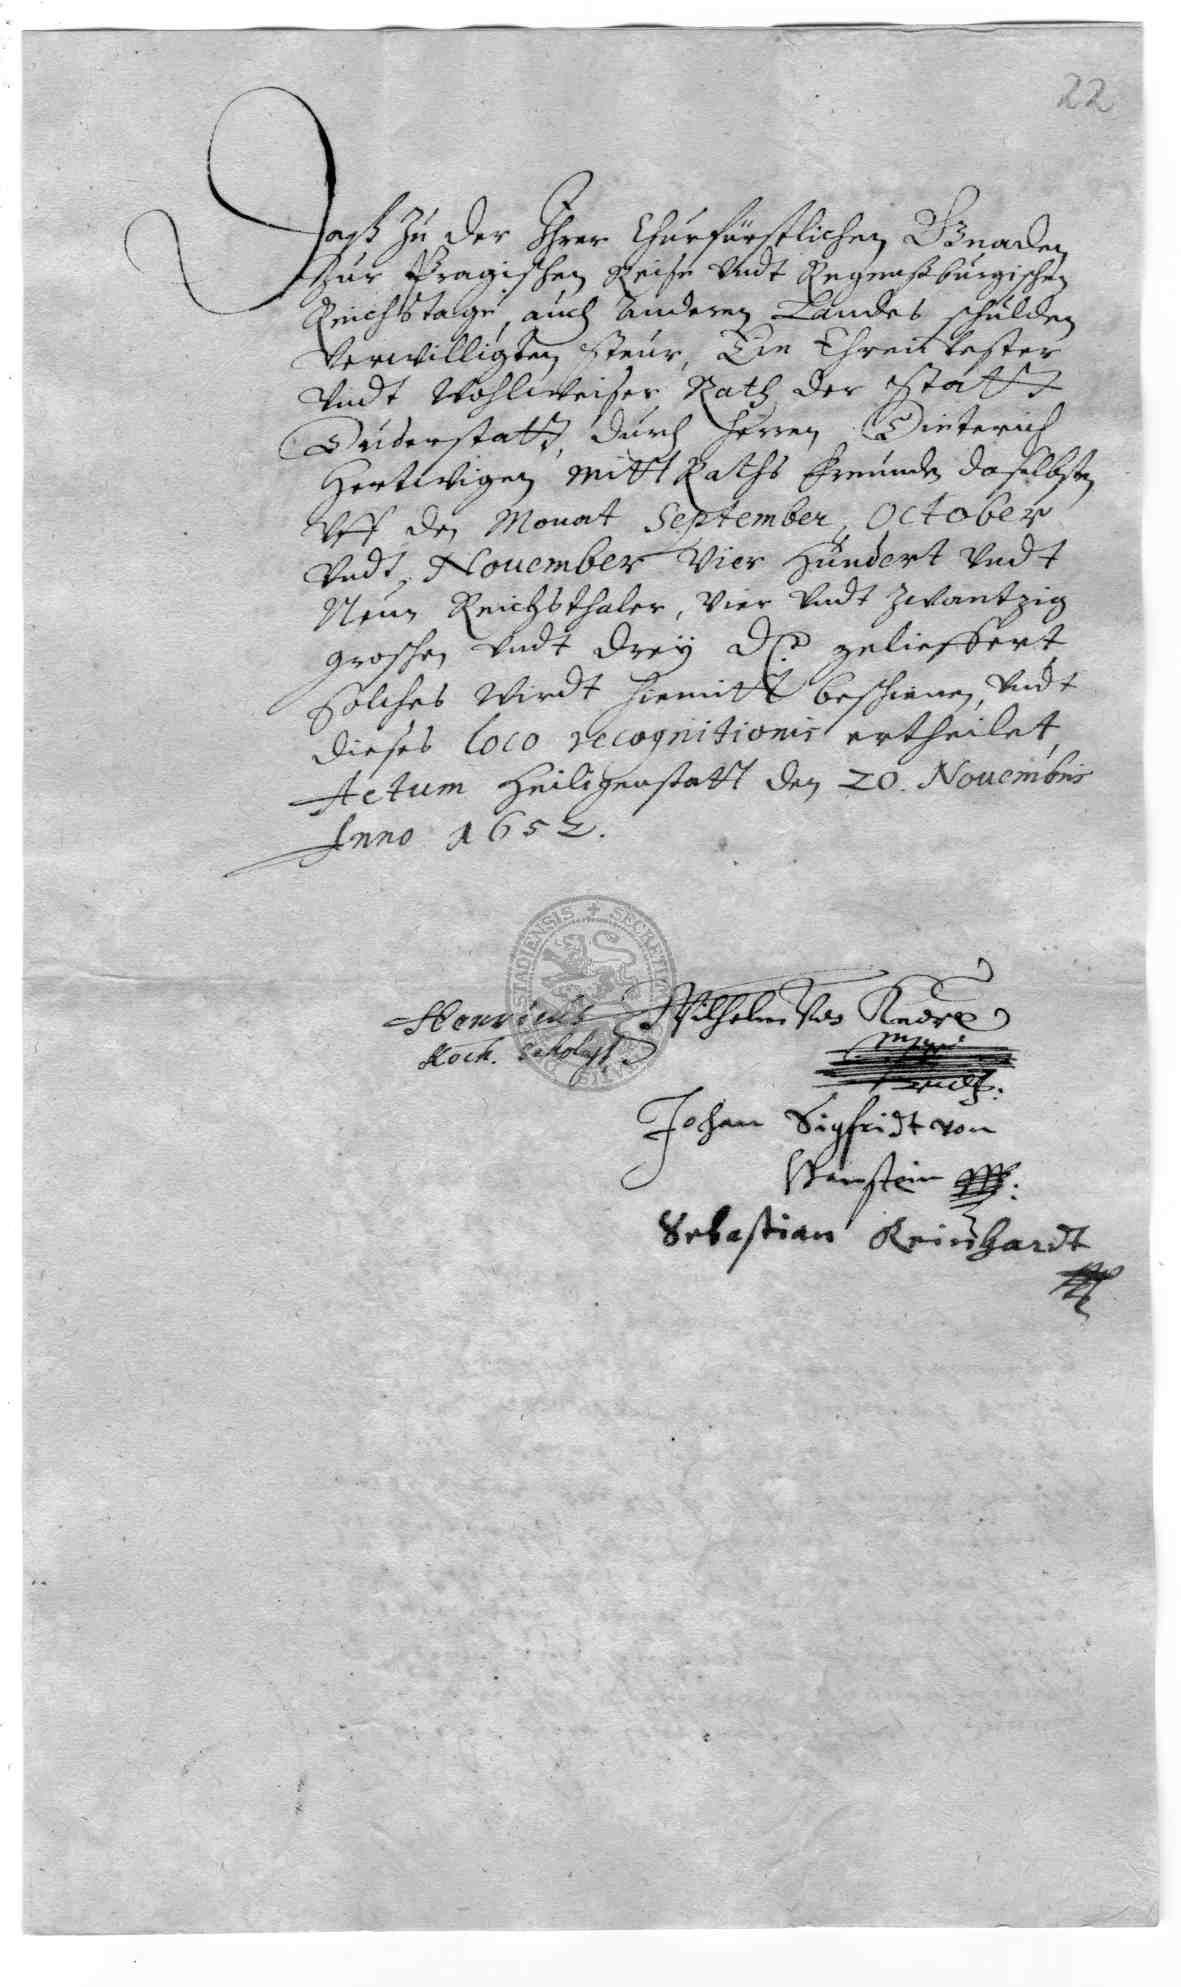 22
Daß zu der Ihrer Churfürstlichen Gnaden
zur Pragischen Reise undt Regenßburgischen
Reichstage, auch anderen Landes schulden
verwilligten steur, Ein Ehrenvester
undt Wohlweiser Rath der Statt
Duderstatt, durch herren Dieterich
Hertwigen mitt Raths freunde daselbsten
Uff den Monat September, October
undt November Vier hundert undt
Neun Reichsthaler, vier undt zwantzig
groschen undt drey d gelieffert,
solches wirdt hiemitt beschienen, undt
dieses loco recognitionis ertheilet,
Actum Heiligenstatt den 20. Novembris
Anno 1652.
SECRETUM
STADIENSIS
Henricus
Koch.
Wilhelm
Johan Sigfridt von
Sebastian Reinhardt